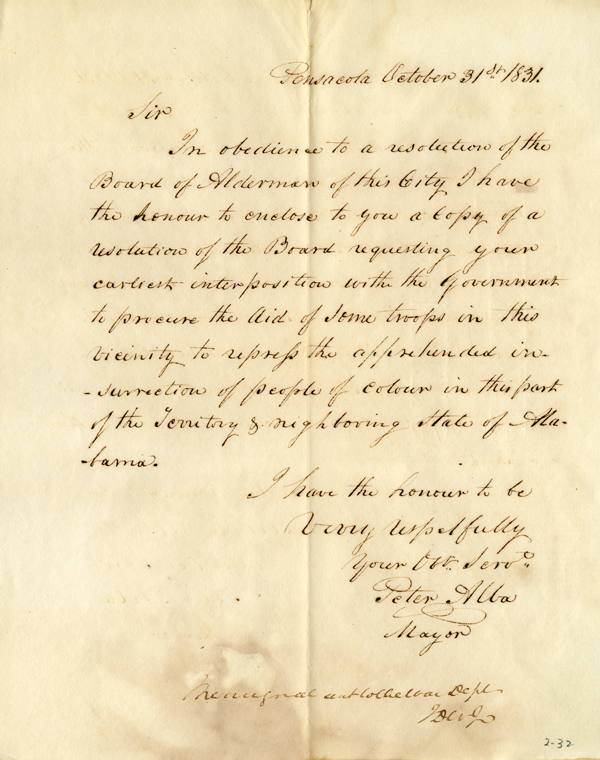 Pensacola October 31st 1831.
Sir
In obedience to a resolution of the
Board of Alderman of this City I have
the honour to enclose to you a Copy of a
resolution of the Board requesting your
earliest interposition with the Government
to procure the Aid of Some troops in this
vicinity to repress the apprehended in-
-surrection of people of colour in this part
of the Territory & neighboring State of Ala-
-bama.
I have the honour to be
Very respectfully
Your Obt. Servt.
Peter Alba
Mayor
to the War Dept
2-32